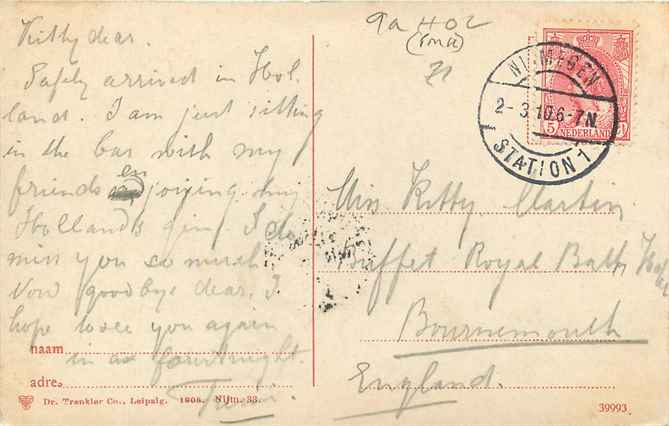 Kitty dear.
Safely arrived in Hol
land. I am just sitting
in the bar with my
friends enjoying my
Hollands gin. I do
miss you so much
Now goodbye dear. I
hope to see you again
in a fortnight.
naam
adres
Dr. Trenkler Co., Leipzig. 1908. Nijm. 33.
9a HOL
NIJMEGEN
2-3.10.6-7N
STATION 1
5
NEDERLAND
Miss Kitty Martin
Buffet Royal Bath Hotel
Bournemouth
England.
39993